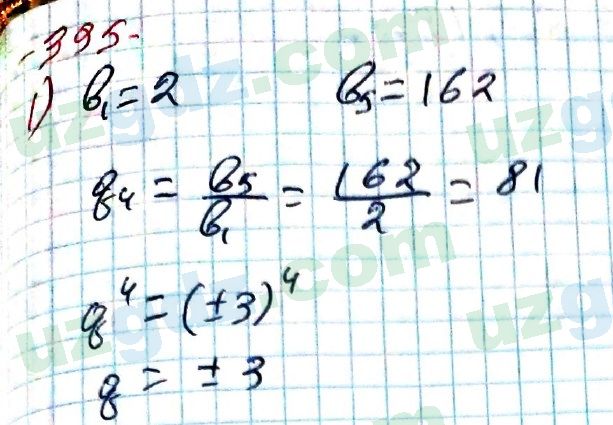 -395-
1) b₁ = 2 b₅ = 162
q₄ = b₅/b₁ = 162/2 = 81
q⁴ = (±3)⁴
q = ±3
uzgdz.com